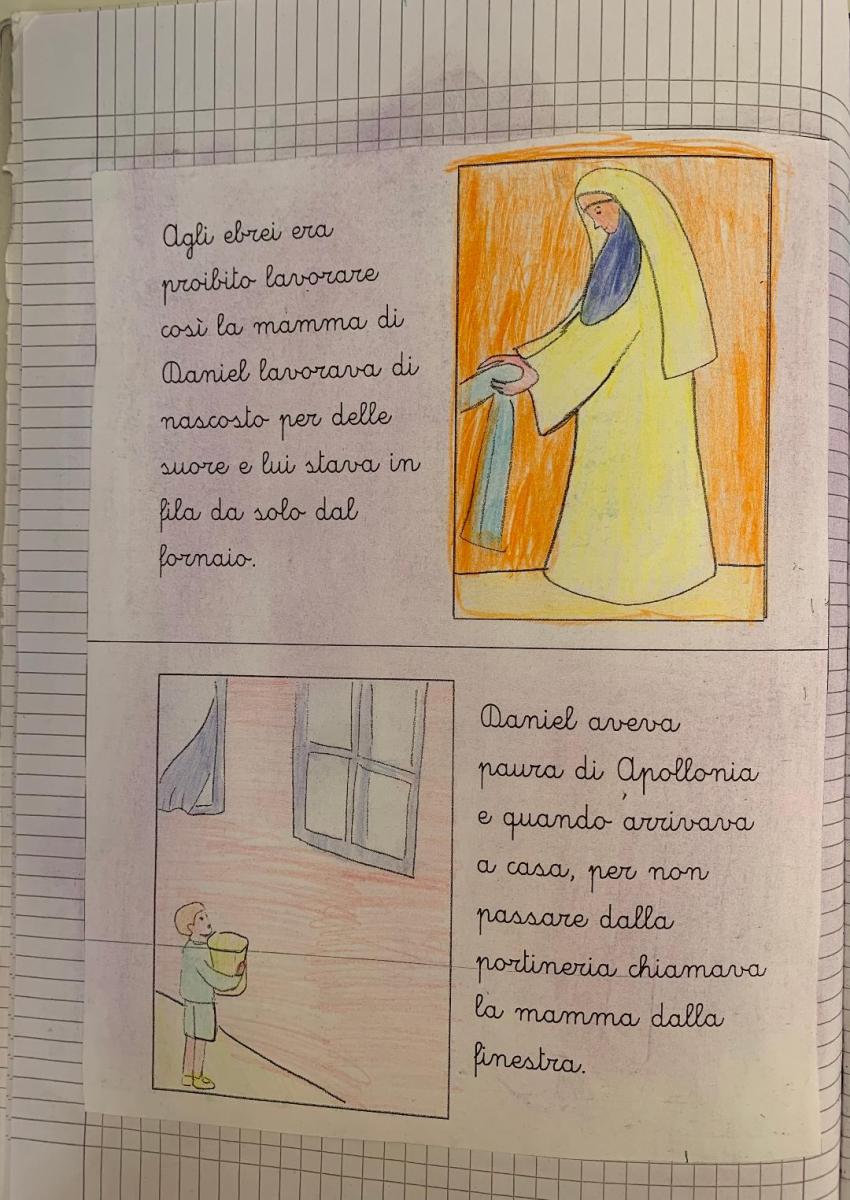 Agli ebrei era
proibito lavorare
così la mamma di
Daniel lavorava di
nascosto per delle
suore e lui stava in
fila da solo dal
fornaio.
Daniel aveva
paura di Apollonia
e quando arrivava
a casa, per non
passare dalla
portineria chiamava
la mamma dalla
finestra.